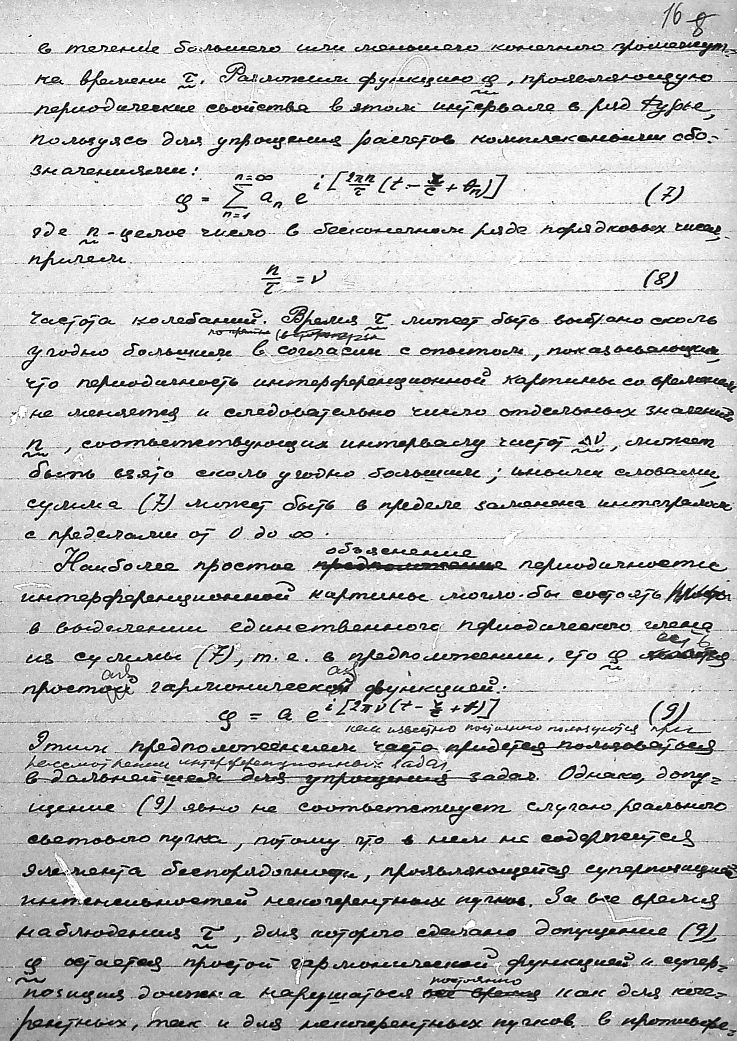 16 8
в течение большего или меньшего конечного промежут-
ка времени τ. Разложим функцию φ, проявляющую
периодические свойства в этом интервале в ряд Фурье,
пользуясь для упрощения расчетов комплексными обо-
значениями:
φ = Σ_{n=1}^{n=∞} a_n e^{i[2πn/τ (t - r/c + ϑ_n)]} (7)
где n - целое число в бесконечном ряде порядковых чисел,
причем
n/τ = ν (8)
частота колебаний. Время τ может быть выбрано сколь
угодно большим в согласии с опытом, показывающим,
что периодичность интерференционной картины со временем
не меняется и следовательно число отдельных значений
n, соответствующих интервалу частот Δν, может
быть взято сколь угодно большим; иными словами,
сумма (7) может быть в пределе заменена интегралом
с пределами от 0 до ∞.
объяснение
Наиболее простое предположение периодичности
интерференционной картины могло бы состоять
в выделении единственного периодического члена
из суммы (7), т. е. в предположении, что φ есть
простой гармонической функцией:
φ = a e^{i[2πν(t - r/c + ϑ)]} (9)
как известно постоянно пользуются при
Этим предположением часто придется пользоваться
рассмотрении интерференционных задач
в дальнейшем для упрощения задач. Однако, допу-
щение (9) явно не соответствует случаю реального
светового пучка, потому что в нем не содержится
элемента беспорядочности, проявляющейся суперпозицией
интенсивностей некогерентных пучков. За все время
наблюдения τ, для которого сделано допущение (9),
φ остается простой гармонической функцией и супер-
постоянно
позиция должна нарушаться все время как для коге-
рентных, так и для некогерентных пучков, в противоре-